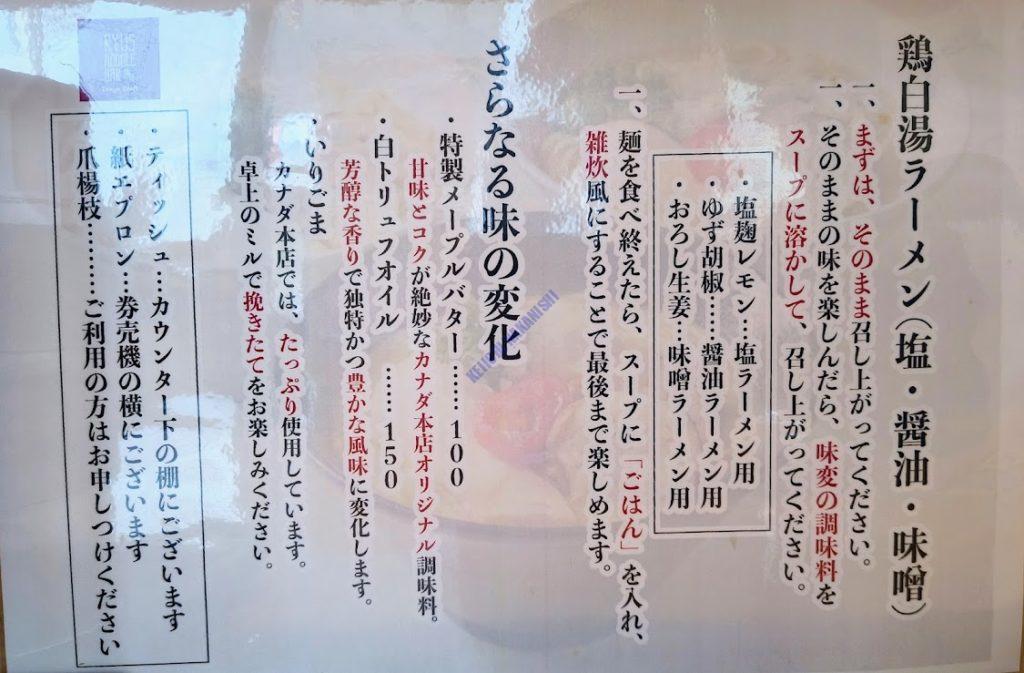 鶏白湯ラーメン(塩・醤油・味噌)
一、まずは、そのまま召し上がってください。
一、そのままの味を楽しんだら、味変の調味料を
スープに溶かして、召し上がってください。
・塩麹レモン…塩ラーメン用
・ゆず胡椒……醤油ラーメン用
・おろし生姜…味噌ラーメン用
一、麺を食べ終えたら、スープに「ごはん」を入れ、
雑炊風にすることで最後まで楽しめます。
さらなる味の変化
・特製メープルバター……100
甘味とコクが絶妙なカナダ本店オリジナル調味料。
・白トリュフオイル ……150
芳醇な香りで独特かつ豊かな風味に変化します。
・いりごま
カナダ本店では、たっぷり使用しています。
卓上のミルで挽きたてをお楽しみください。
・ティッシュ…カウンター下の棚にございます
・紙エプロン…券売機の横にございます
・爪楊枝………ご利用の方はお申しつけください
RYUS
NOODLE
BAR